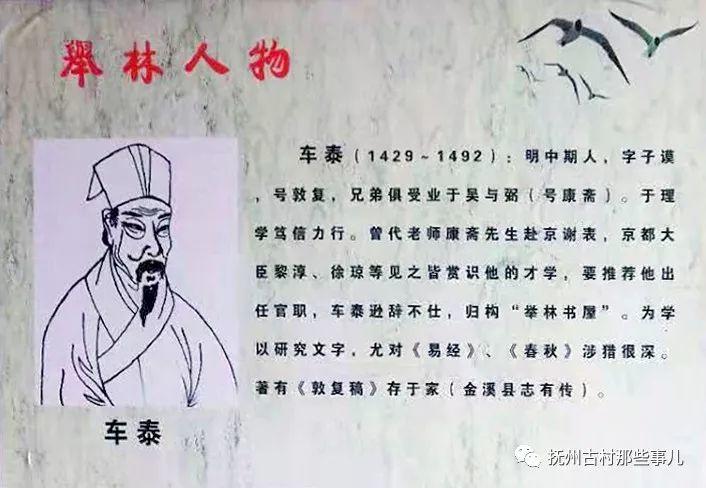 舉林人物
车泰（1429～1492）：明中期人，字子谟
，号敦复，兄弟俱受业于吴与弼（号康斋）。于理
学笃信力行。曾代老师康斋先生赴京谢表，京都大
臣黎淳、徐琼等见之皆赏识他的才学，要推荐他出
任官职，车泰逊辞不仕，归构“举林书屋”。为学
以研究文字，尤对《易经》、《春秋》涉猎很深。
著有《敦复稿》存于家（金溪县志有传）。
车泰
抚州古村那些事儿